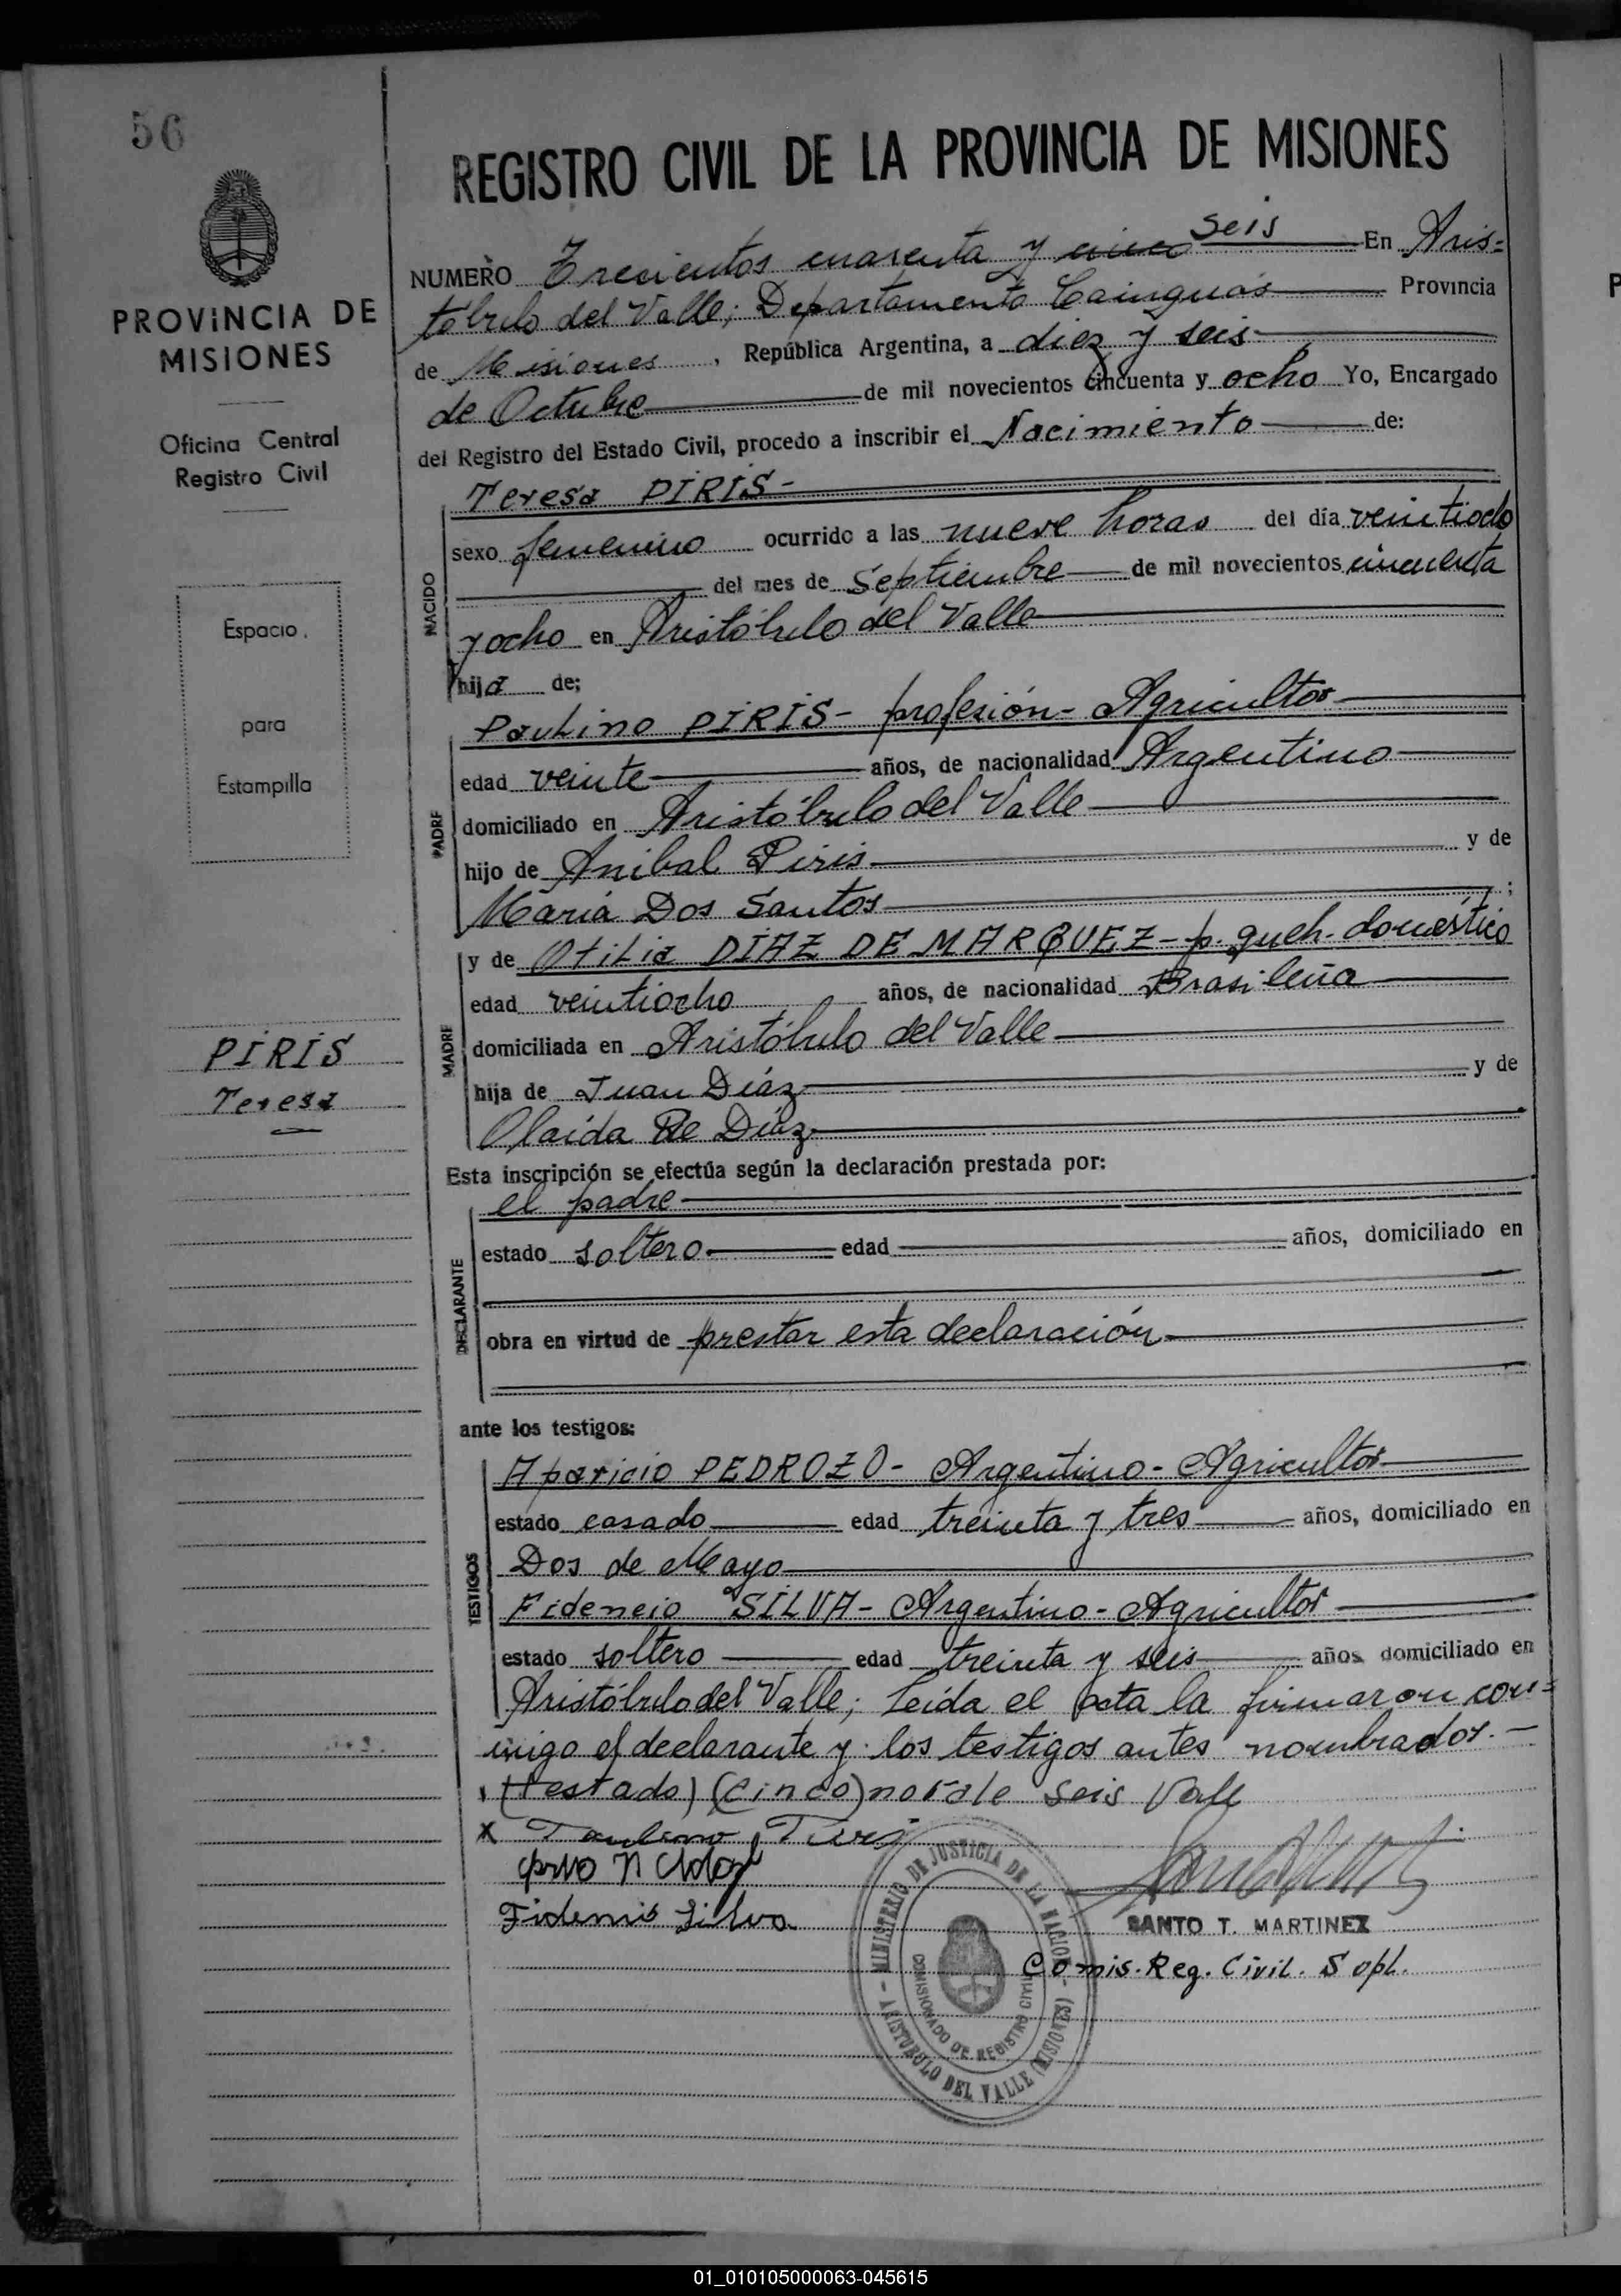 56
REGISTRO CIVIL DE LA PROVINCIA DE MISIONES
PROVINCIA DE
MISIONES
Oficina Central
Registro Civil
Espacio
para
Estampilla
PIRIS
Teresa
NUMERO Trecientos cuarenta y cinco seis En Aris=
tóbulo del Valle; Departamento Cainguás Provincia
de Misiones, República Argentina, a diez y seis
de Octubre de mil novecientos cincuenta y ocho Yo, Encargado
del Registro del Estado Civil, procedo a inscribir el Nacimiento de:
NACIDO
Teresa PIRIS-
sexo femenino ocurrido a las nueve horas del día veintiocho
del mes de Septiembre de mil novecientos cincuenta
y ocho en Aristóbulo del Valle
hija de;
PADRE
Paulino PIRIS- profesión- Agricultor
edad veinte años, de nacionalidad Argentino
domiciliado en Aristóbulo del Valle
hijo de Anibal Piris y de
Maria Dos Santos ;
MADRE
y de Otilia DIAZ DE MARQUEZ- p. queh. doméstico
edad veintiocho años, de nacionalidad Brasileña
domiciliada en Aristóbulo del Valle
hija de Juan Diáz y de
Olaida De Diáz
Esta inscripción se efectúa según la declaración prestada por:
DECLARANTE
el padre
estado soltero edad años, domiciliado en
obra en virtud de prestar esta declaración
ante los testigos:
TESTIGOS
Aparicio PEDROZO- Argentino- Agricultor
estado casado edad treinta y tres años, domiciliado en
Dos de Mayo
Fidencio SILVA- Argentino- Agricultor
estado soltero edad treinta y seis años domiciliado en
Aristóbulo del Valle; Leída el acta la firmaron con=
migo el declarante y los testigos antes nombrados.-
(testado) (cinco) no vale seis Vale
x
Fidenis Silva
SANTO T. MARTINEZ
Comis. Reg. Civil. Supl.
MINISTERIO DE JUSTICIA DE LA NACION
COMISIONADO DE REGISTRO CIVIL
ARISTOBULO DEL VALLE (MISIONES)
01_010105000063-045615